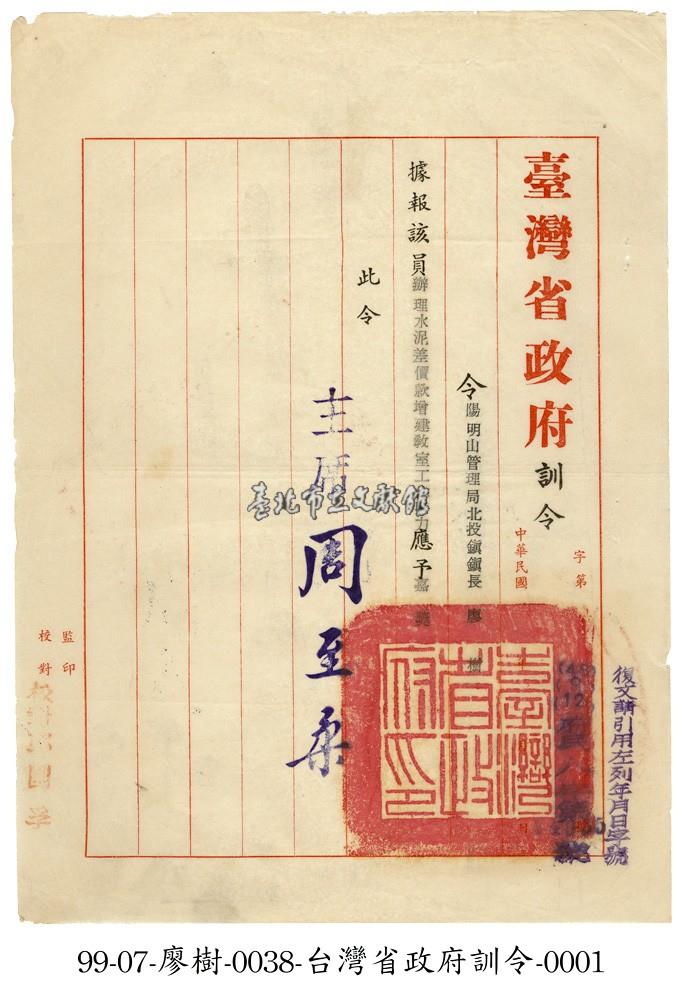 臺灣省政府訓令
字第
中華民國
復文請引用左列年月日字號
令陽明山管理局北投鎮鎮長廖樹
據報該員辦理水泥差價款增建教室工力應予嘉獎
此令
主席周至柔
臺灣省政府印
臺北市立文獻館
監印
校對
99-07-廖樹-0038-台灣省政府訓令-0001